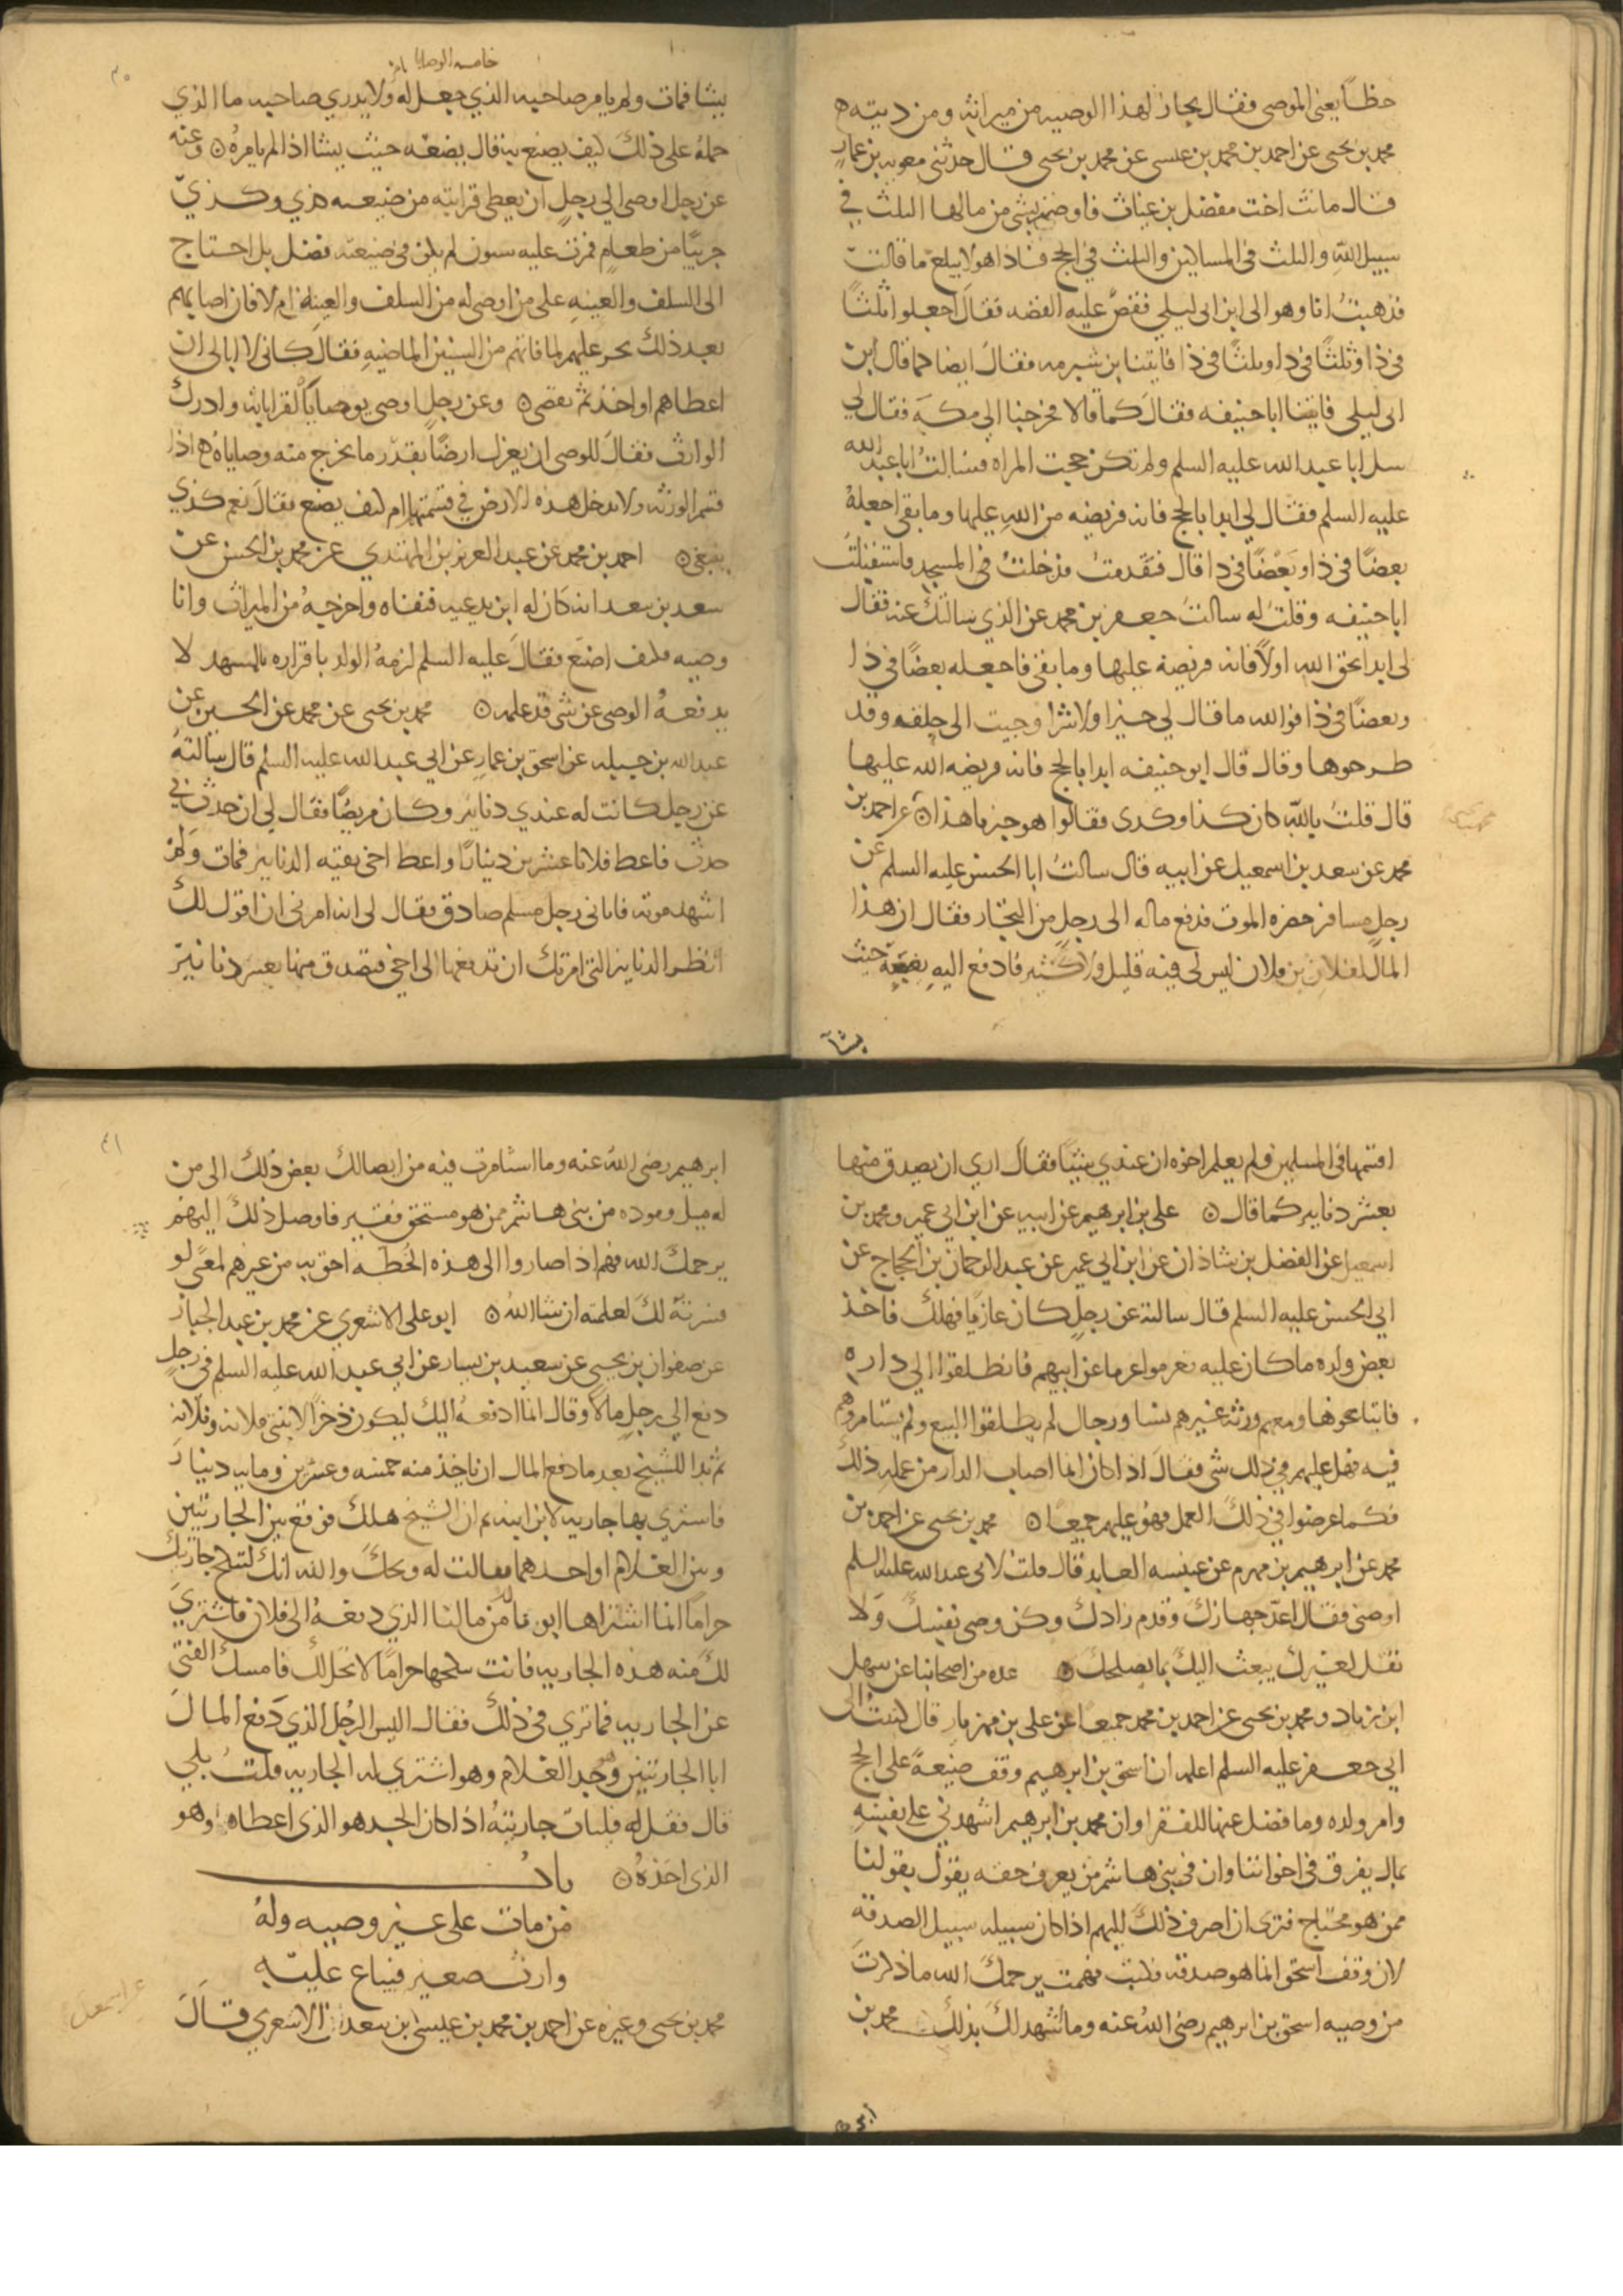 حظا يعنى الموصى فقال يجاز لهذا الوصيه من ميراثه ومن ديته ه
محمد بن يحيى عن احمد بن محمد بن عيسى عن محمد بن يحيى قال حدثنى معويه بن عمار
قال ماتت اخت مفضل بن غياث فاوصت بشى من مالها الثلث في
سبيل الله والثلث فى المساكين والثلث فى الحج فاذا هو لا يبلغ ما قالت
فذهبتُ انا وهو الى ابن ابى ليلي فقصّ عليه القصه فقال اجعلوا ثلثًا
فى ذا وثلثًا فى ذا وثلثًا فى ذا فاتينا بن شبرمه فقالَ ايضا كما قال ابن
ابى ليلي فاتينا ابا حنيفه فقالَ كما قالا فخرجنا الي مكه فقال لي
سل ابا عبد الله عليه السلم ولم تكن حجت المراه فسالتُ ابا عبد الله
عليه السلم فقال لي ابدا بالحج فانه فريضه من اللهِ عليها وما بقى اجعلهُ
بعضًا فى ذا وبَعْضًا فى ذا قال فتقدمتُ فدخلتُ فى المسجد فاستقبلتُ
ابا حنيفه وقلت له سالتُ جعفر بن محمد عن الذي سالتك عنه فقال
لى ابدا بحق الله اولًا فانه فريضة عليها وما بقى فاجعله بعضًا فى ذا
وبعضًا فى ذا فوالله ما قال لي خيرا ولا شرا وجيت الى حلقه وقد
طرحوها وقال قال ابو حنيفه ابدا بالحج فانه فريضه الله عليها
قال قلتُ باللّه كان كذا وكذى فقالوا هو خبرنا هذا ن عن احمد بن
محمد عن سعد بن اسمعيل عن ابيه قال سالتُ ابا الحسن عليه السلم عن
رجل مسافر حضره الموت فدفع ماله الى رجلٍ من التجار فقال ان هذا
المال لفلان بن فلان ليس لى فيه قليل ولا كثير فادفع اليهِ يضعه حيث
يشآ
خامسه الوصايا
يشا فمات ولم يامر صاحبه الذي جعل له ولا يدري صاحبه ما الذي
حملهُ على ذلكَ كيف يصنع به قال يضعه حيث يشا اذا لم يامرهُ ن وعنه
عن رجل اوصى الي رجلٍ ان يعطى قرابته من ضيعه كذي وكذيّ
جريبًا من طعامٍ فمرت عليه سنون لم يكن فى ضيعته فضل بل احتاج
الى السلف والعينهِ على من اوصى له من السلف والعينهِ ام لا فان اصابهم
بعد ذلك يجر عليهم لما فاتهم من السنين الماضيهِ فقالَ كانى لا ابالى ان
اعطاهم او اخذ ثم يقضى ن وعن رجلٍ اوصى بوصايا لقراباته وادرك
الوارث فقالَ للوصى ان يعزل ارضًا بقدر ما يخرج منه وصاياه اذا
قسم الورثه ولا يدخل هذه الارض فى قسمتهم ام كيف يصنع فقالَ نعم كذي
ينبغى ن احمد بن محمد عن عبد العزيز بن المهتدي عن محمد بن الحسن عن
سعد بن سعد انه كان له ابن يدعيه فنفاه واخرجهُ من الميراث وانا
وصيه فكيف اصنع فقالَ عليه السلم لزمهُ الولد باقراره بالمشهد لا
يدفعهُ الوصى عن شى قد علمه ن محمد بن يحيى عن محمد عن الحسين عن
عبد الله بن جبله عن اسحق بن عمار عن ابي عبد الله عليه السلم قال سالته
عن رجل كانت له عندي دنانير وكان مريضًا فقال لى ان حدث بي
حدث فاعط فلانا عشرين دينارًا واعط اخى بقيه الدنانير فمات ولم
اشهد موته فاتانى رجل مسلم صادق فقال لى انه امرنى ان اقول لك
انظر الدنانير التى امرتك ان تدفعها الى اخى فتصدق منها بعشر دنانير
اقسمها فى المسلمين فلم يعلم اخوه ان عندي شيًا فقالَ اري ان يصدق منها
بعشر دنانير كما قال ن على بن ابرهيم عن ابيه عن ابن ابى عمير ومحمد بن
اسمعيل عن الفضل بن شاذان عن ابن ابي عمير عن عبد الرحمان بن الحجاج عن
ابي الحسن عليه السلم قال سالته عن رجل كان غازيًا فهلك فاخذ
بعض ولده ما كان عليه فغرموا غرما عن ابيهم فانطلقوا الي داره
فابتاعوها ومعهم ورثه غيرهم نسا ورجال لم يطلقوا البيع ولم يستامروهم
فيه فهل عليهم فى ذلك شى فقال اذا كان انما اصاب الدار من عمله ذلك
فكما عرضوا فى ذلكَ العمل فهو عليهم جميعًا ن محمد بن يحيى عن احمد بن
محمد عن ابرهيم بن مهزم عن عنبسه العابد قال قلت لابى عبد الله عليه السلم
اوصنى فقال اعدّ جهازك وقدم زادك وكن وصى نفسك ولا
تقل لغيرك يبعث اليك بما يصلحك ن عده من اصحابنا عن سهل
ابن زياد ومحمد بن يحيى عن احمد بن محمد جميعًا عن على بن مهزيار قال كتبتُ الى
ابي جعفر عليه السلم اعلمه ان اسحق بن ابرهيم وقف ضيعهً على الحج
وام ولده وما فضل عنها للفقرا وان محمد بن ابرهيم اشهدنى على نفسهِ
بمال يفرق فى اخواننا وان فى بنى هاشم من يعرف حقه يقول بقولنا
ممن هو محتاج فترى ان اصرف ذلكَ اليهم اذا كان سبيله سبيل الصدقه
لان وقف اسحق انما هو صدقه فكتب فهمت يرحمك الله ما ذكرتَ
من وصيه اسحق بن ابرهيم رضى اللهُ عنه وما اشهد لكَ بذلك محمد بن
ابرهيم
٤١
ابرهيم رضى اللهُ عنه وما استامرت فيه من ايصالك بعض ذلك الى من
له ميل وموده من بنى هاشم ممن هو مستحق فقير فاوصل ذلكَ اليهم
يرحمك الله فهم اذا صاروا الى هذه الخُطه احق به من غيرهم لمعنًى لو
فسرته لكَ لعلمته ان شا اللهُ ن ابو على الاشعري عن محمد بن عبد الجبار
عن صفوان بن يحيى عن سعيد بن يسار عن ابى عبد الله عليه السلم فى رجلٍ
دفع الي رجلٍ مالًا وقال انما ادفعهُ اليك ليكون ذخرًا لابنتى فلانه وفلانه
ثم بدا للشيخ بعد ما دفع المال ان ياخذ منه خمسه وعشرين ومايه دينار
فاشتري بها جاريه لابن ابنه ثم ان الشيخ هلك فوقع بين الجاريتين
وبين الغلام او احدهما فقالت له ويحك والله انك لتنكح جاريتك
حرامًا انما اشتراها ابونا لك من مالنا الذي دفعهُ الى فلان فاشتري
لك منه هذه الجاريه فانت تنكحها حرامًا لا تحل لك فامسك الفتى
عن الجاريه فما تري فى ذلكَ فقال اليس الرجُل الذي دَفع المالَ
ابا الجاريتين وهو جد الغلام وهو اشتري له الجاريه قلتُ بلي
قال فقل له فليات جاريتهُ اذا كان الجد هو الذى اعطاه وهو
الذى اخذهُ ن بابُ
من مات على غير وصيه ولهُ
وارث صغير فيباع عليهِ
محمد بن يحيى وغيره عن احمد بن محمد بن عيسى بن سعد الاشعري قالَ